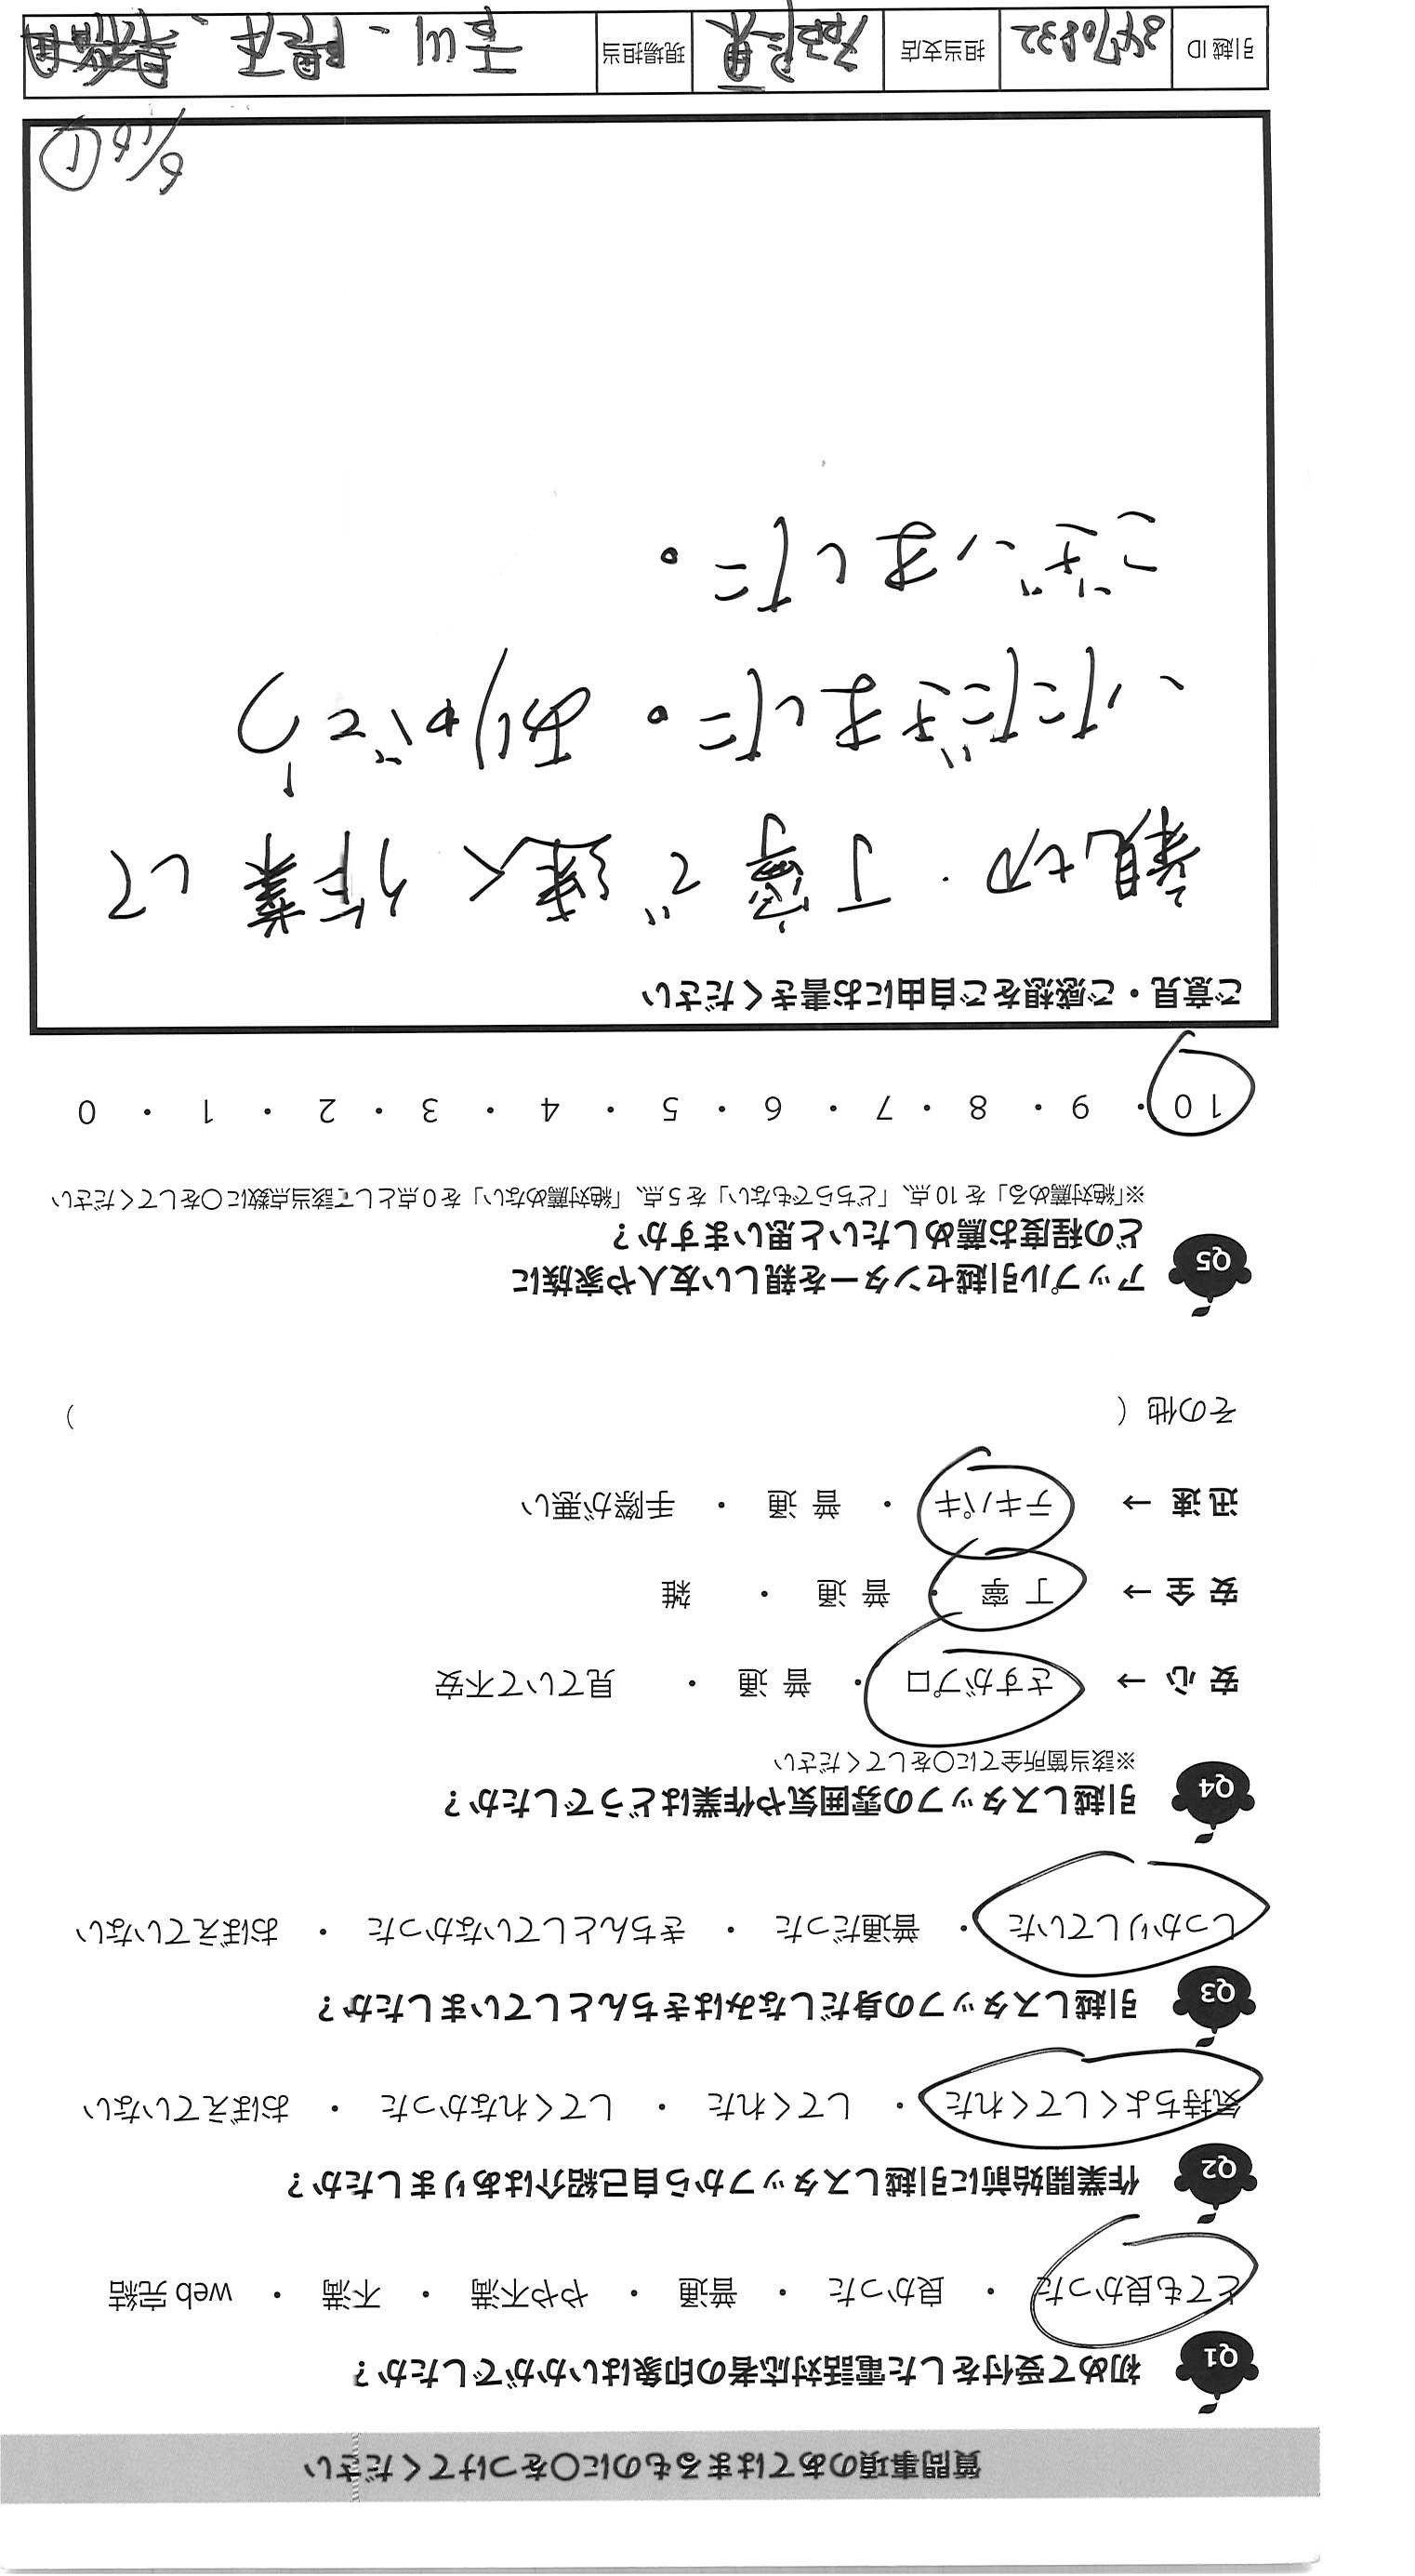 質問事項のあてはまるものに○をつけてください
Q1 初めて受付をした電話対応者の印象はいかがでしたか？
とても良かった ・ 良かった ・ 普通 ・ やや不満 ・ 不満 ・ web 完結
Q2 作業開始前に引越しスタッフから自己紹介はありましたか？
気持ちよくしてくれた ・ してくれた ・ してくれなかった ・ おぼえていない
Q3 引越しスタッフの身だしなみはきちんとしていましたか？
しっかりしていた ・ 普通だった ・ きちんとしていなかった ・ おぼえていない
Q4 引越しスタッフの雰囲気や作業はどうでしたか？
※該当箇所全てに○をしてください
安 心 → さすがプロ ・ 普 通 ・ 見ていて不安
安 全 → 丁 寧 ・ 普 通 ・ 雑
迅 速 → テキパキ ・ 普 通 ・ 手際が悪い
その他（ ）
Q5 アップル引越センターを親しい友人や家族に
どの程度お薦めしたいと思いますか？
※「絶対薦める」を 10 点、「どちらでもない」を 5 点、「絶対薦めない」を 0 点として該当点数に○をしてください
10 ・ 9 ・ 8 ・ 7 ・ 6 ・ 5 ・ 4 ・ 3 ・ 2 ・ 1 ・ 0
ご意見・ご感想をご自由にお書きください
親切・丁寧で速く作業して
いただきました。ありがとう
ございました。
6/15 ①
引越 ID 担当支店 現場担当 青山